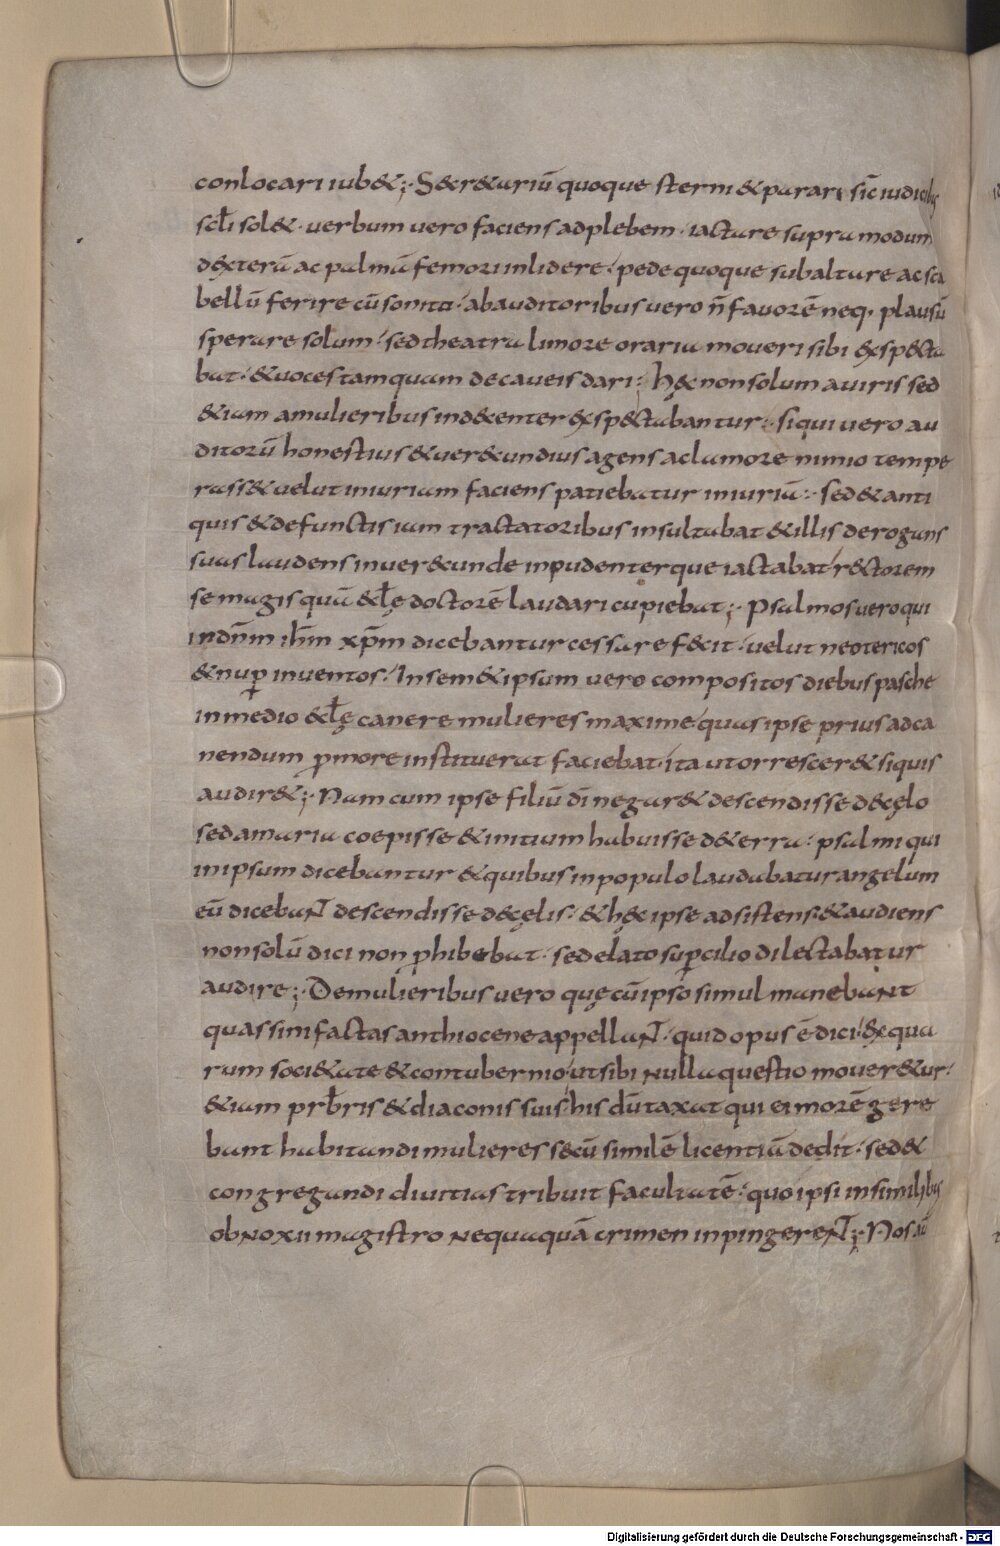 conlocari iub&;· S&r&ariū quoque sterni & parari sic̄ iudicibus
scłi sol&· verbum vero faciens adplebem· iactare supra modum
d&xterā ac palmā femori inlidere· pede quoque subaltare ac sca
bellū ferire cū sonitu· abauditoribus vero n̄ favorē neq· plausū
sperare solum· sed theatrali more oraria moveri sibi &xsp&cta
bat· & voces tamquam decaveis dari· h&c non solum aviris sed
&iam amulieribus ind&center &xsp&ctabantur· siqui vero au
ditorū honestius & ver&undius agens aclamore nimio tempe
rass& velut iniuriam faciens patiebatur iniuriā· sed & anti
quis & defunctis iam tractatoribus insultabat & illis derogans
suas laudens inver&unde inpudenterque iactabat r&ctorem
se magis quā &łę doctorē laudari cupiebat;· Psalmos vero qui
in dn̄m ih̄m xp̄m dicebantur cessare fecit· velut neotericos
& nup̄ inventos· In sem&ipsum vero compositos diebus pasche
in medio &łę canere mulieres maxime quas ipse prius adca
nendum p̄ more instituerat faciebat· ita ut orrescer& siquis
audir&;· Nam cum ipse filiū dī negar& descendisse de cęlo
sed amaria coepisse & initium habuisse d&erra· psalmi qui
in ipsum dicebantur & quibus in populo laudabatur angelum
eū dicebaNT descendisse de cęlis· & h&c ipse adsistens & audiens
non solū dici non p̄hibebat· sed elato sup̄cilio dilectabatur
audire;· De mulieribus vero quę cū ipso simul manebaNt
quas sinifactas anthiocene appellaNT· quid opus ē dici· &x qua
rum soci&ate & contubernio ut sibi Nulla questio mover&ur·
&iam prb̄ris & diaconis suis his dūtaxat qui ei morē gere
bant habitandi mulieres secū similē licentiā dedit· sed &
congregandi divitias tribuit facultatē· quo ipsi in similibus
obNoxii magistro Nequaquā crimen inpingereNT;· Nos aū